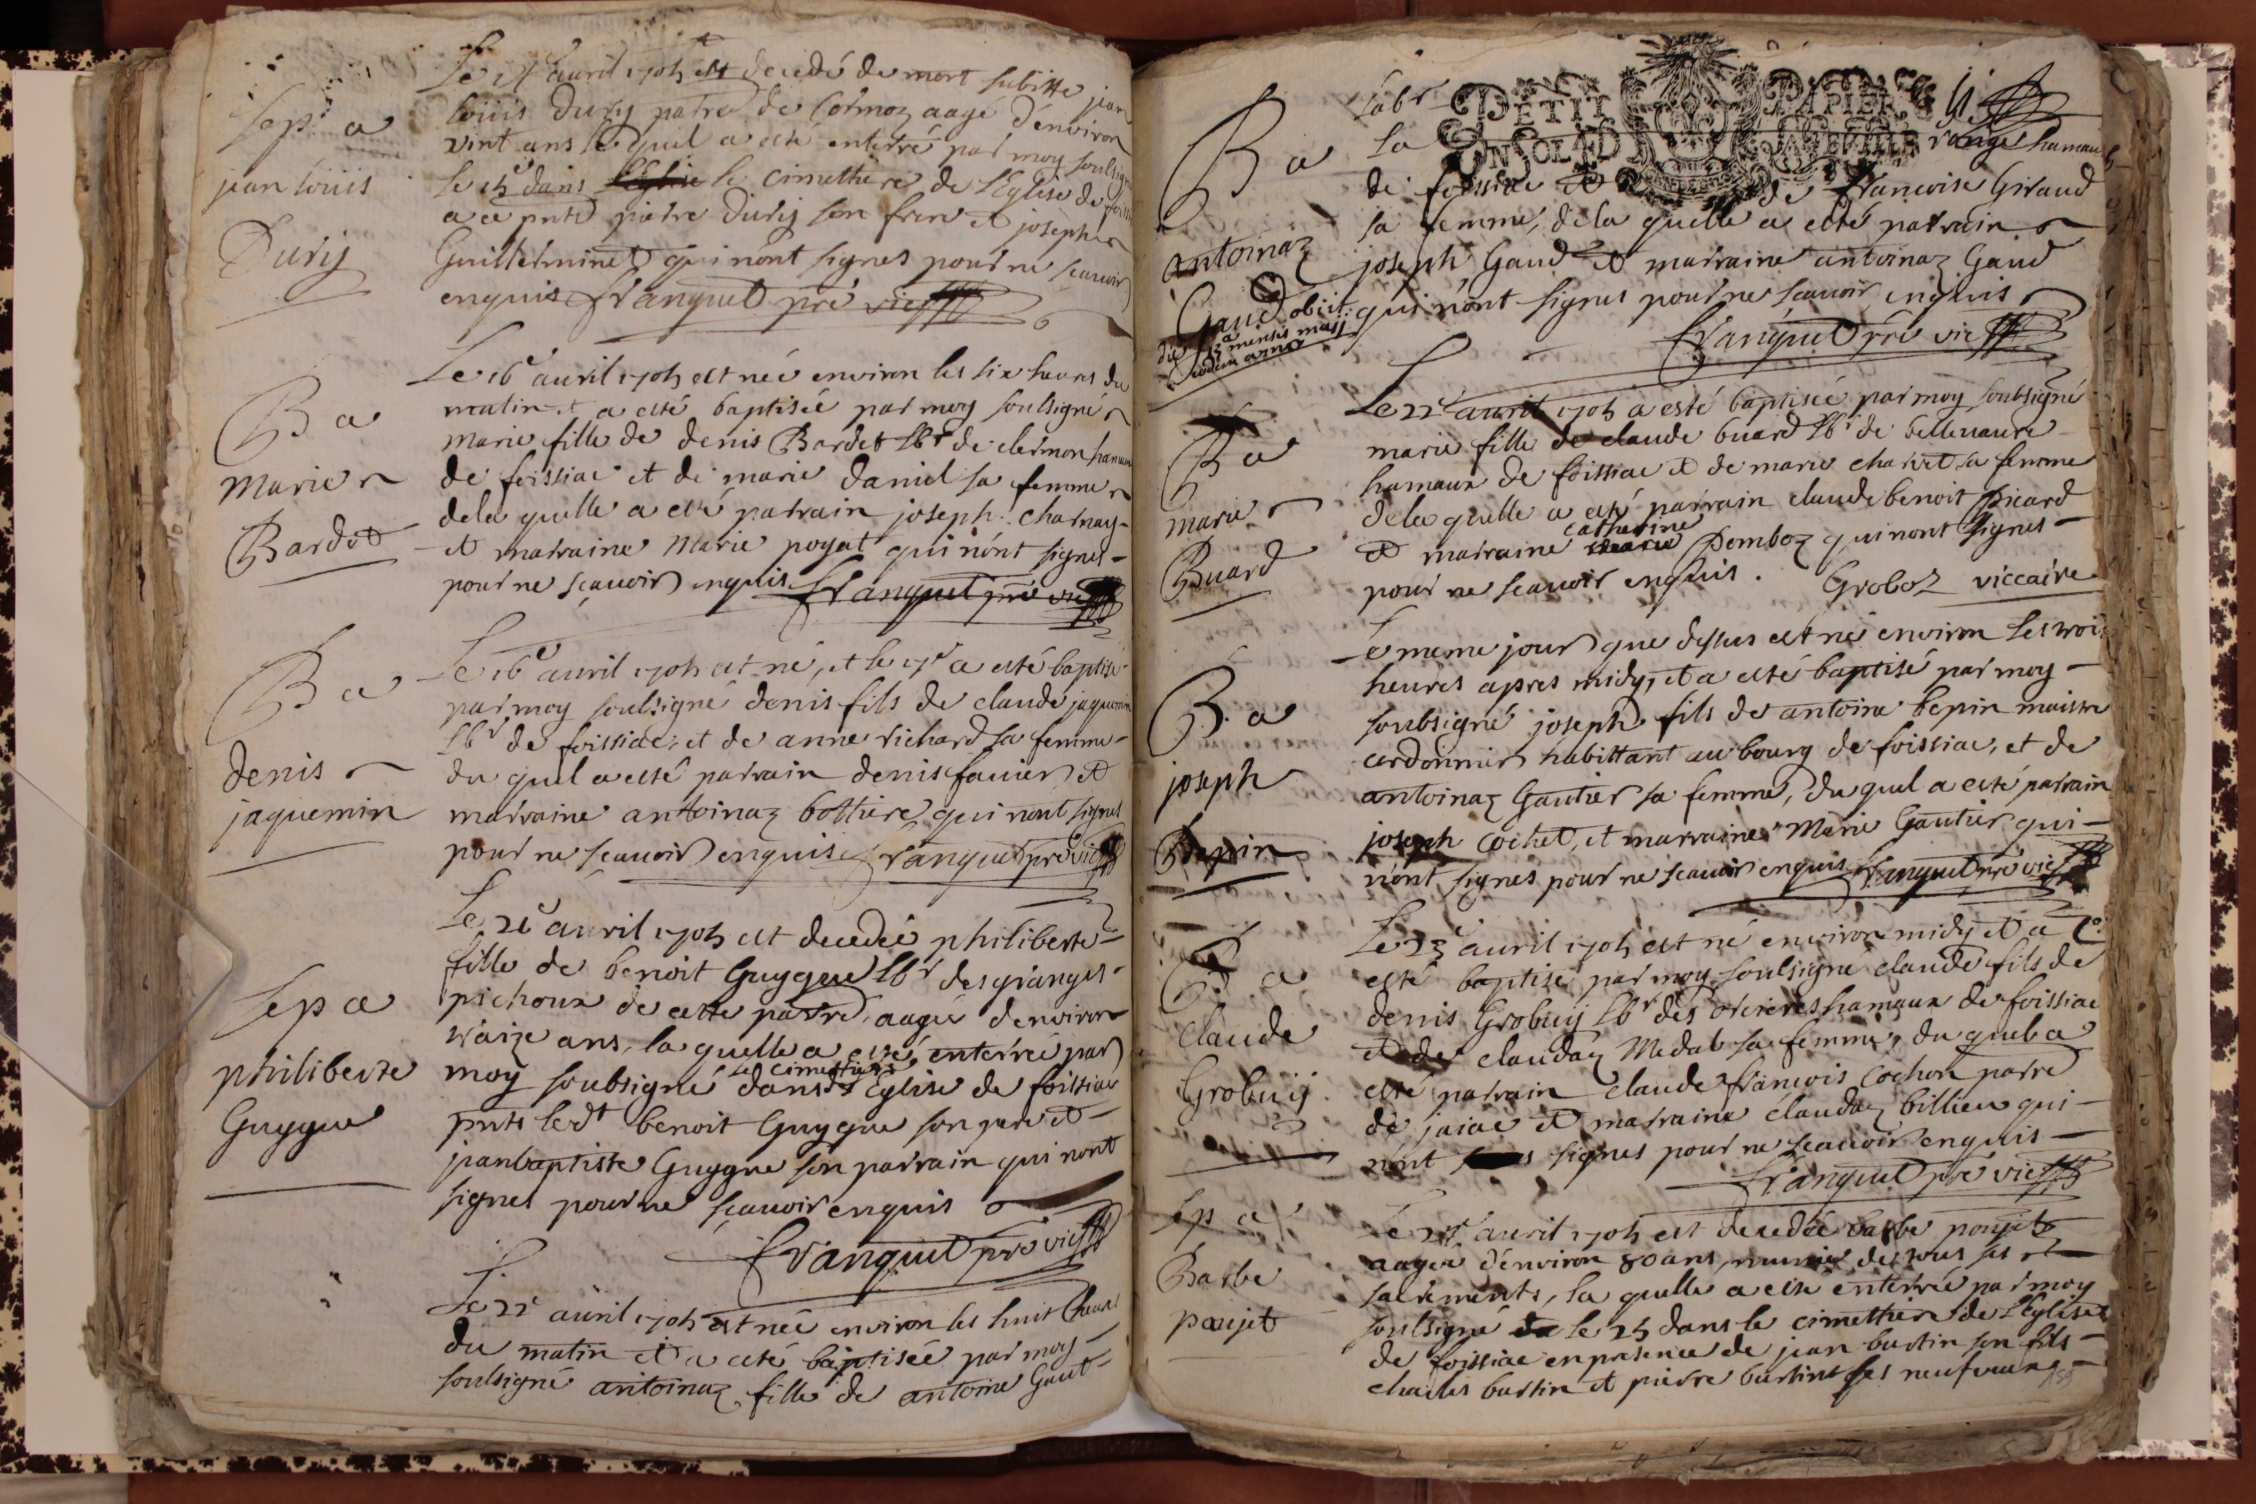 Sep.a
jean louis
Duriy
Le 14 auril 1705 est decedé de mort subitte jean
louis Duriy patre de Cormoz aagé d'environ
vint ans le quil a esté enterré par moy soulsigné
le 15e dans l'Eglise le cimettiere de l'Eglise de
a ce pnts piatre Duriy son frere et joseph
Guillerminet qui nont signes pour ne scauoir
enquis Franquet pre vic
Ba
Marie
Bardet
Le 16e auril 1705 est née environ les six heures du
matin et a esté baptisée par moy soulsigné
marie fille de denis Bardet lbr de clermon hamau
de foissiac et de marie daniel sa femme
dela quelle a esté patrain joseph charnay
et matraine Marie poyat qui n'ont signes
pour ne scauoir enquis Franquet pre vic
Ba
denis
jaquemin
Le 16e auril 1705 est né, et le 17e a esté baptisé
par moy soulsigné denis fils de claude jaquemin
lbr de foissiac et de anne richard sa femme
du quel a esté patrain denis fauier et
matraine antoinaz bottiere qui nont signes
pour ne scauoir enquis Franquet pre vic
Sep a
philiberte
Guygue
Le 21e auril 1705 est decedée philiberte
fille de benoit Guygue lbr des granges
pichoux de cette parre, aagée denviron
traize ans, la quelle a esté enterrée par
moy soubsigné dans le cimettiere de l'Eglise de foissiac
pnts ledt benoit Guygue son pere et
jean baptiste Guygue son patrain qui nont
signes pour ne scauoir enquis
Franquet pre vic
Le 22e auril 1705 est née environ les huit heures
du matin et a esté baptisée par moy
soulsigné antoinaz fille de antoine Gaut
PETIT PAPIER
UN SOL
Ba
antoinaz
Gaud obiit
die 13a mensis maij
eodem anno
labr
La range hamau
de foissiac et de Francoise Giraud
sa femme, dela quelle a esté patrain
joseph Gaud et matraine antoinaz Gaud
qui n'ont signes pour ne scauoir enquis
Franquet pre vic
Ba
marie
Buard
Le 22e auril 1705 a esté baptisée par moy soubsigné
marie fille de claude buard lbr de belleuaure
hamaux de foissiac et de marie charvet sa femme
dela quelle a esté patrain claude benoit Picard
et matraine catherine Pemboz qui nont signes
pour ne scauoir enquis. Groboz viccaire
Ba
joseph
Bepin
Le meme jour que dessus est né environ les trois
heures apres midy, et a esté baptisé par moy
soubsigné joseph fils de antoine bepin maistre
cordonnier habittant au bourg de foissiac, et de
antoinaz Gautier sa femme, du quel a esté patrain
joseph cochet, et marraine Marie Gautier qui
n'ont signes pour ne scauoir enquis Franquet pre vic
Ba
Claude
Grobuij
Le 23e auril 1705 est né environ midy et a
esté baptisé par moy soulsigné claude fils de
denis Grobuij lbr des hamaux de foissiac
et de claudaz Midal sa femme, du quel a
esté patrain claude francois Cochon patre
de jaiac et matraine claudaz billieu qui
nont signes pour ne scauoir enquis
Franquet pre vic
Sep a
Barbe
poujet
Le 24e auril 1705 est decedée barbe poujet
aagée d'environ 80 ans, munie de tous ses
sacrements, la quelle a esté enterrée par moy
soulsigné le 25 dans le cimettiere de l'Eglise
de foissiac en presence de jean burtin son fils
charles burtin et pierre burtin ses neufueux